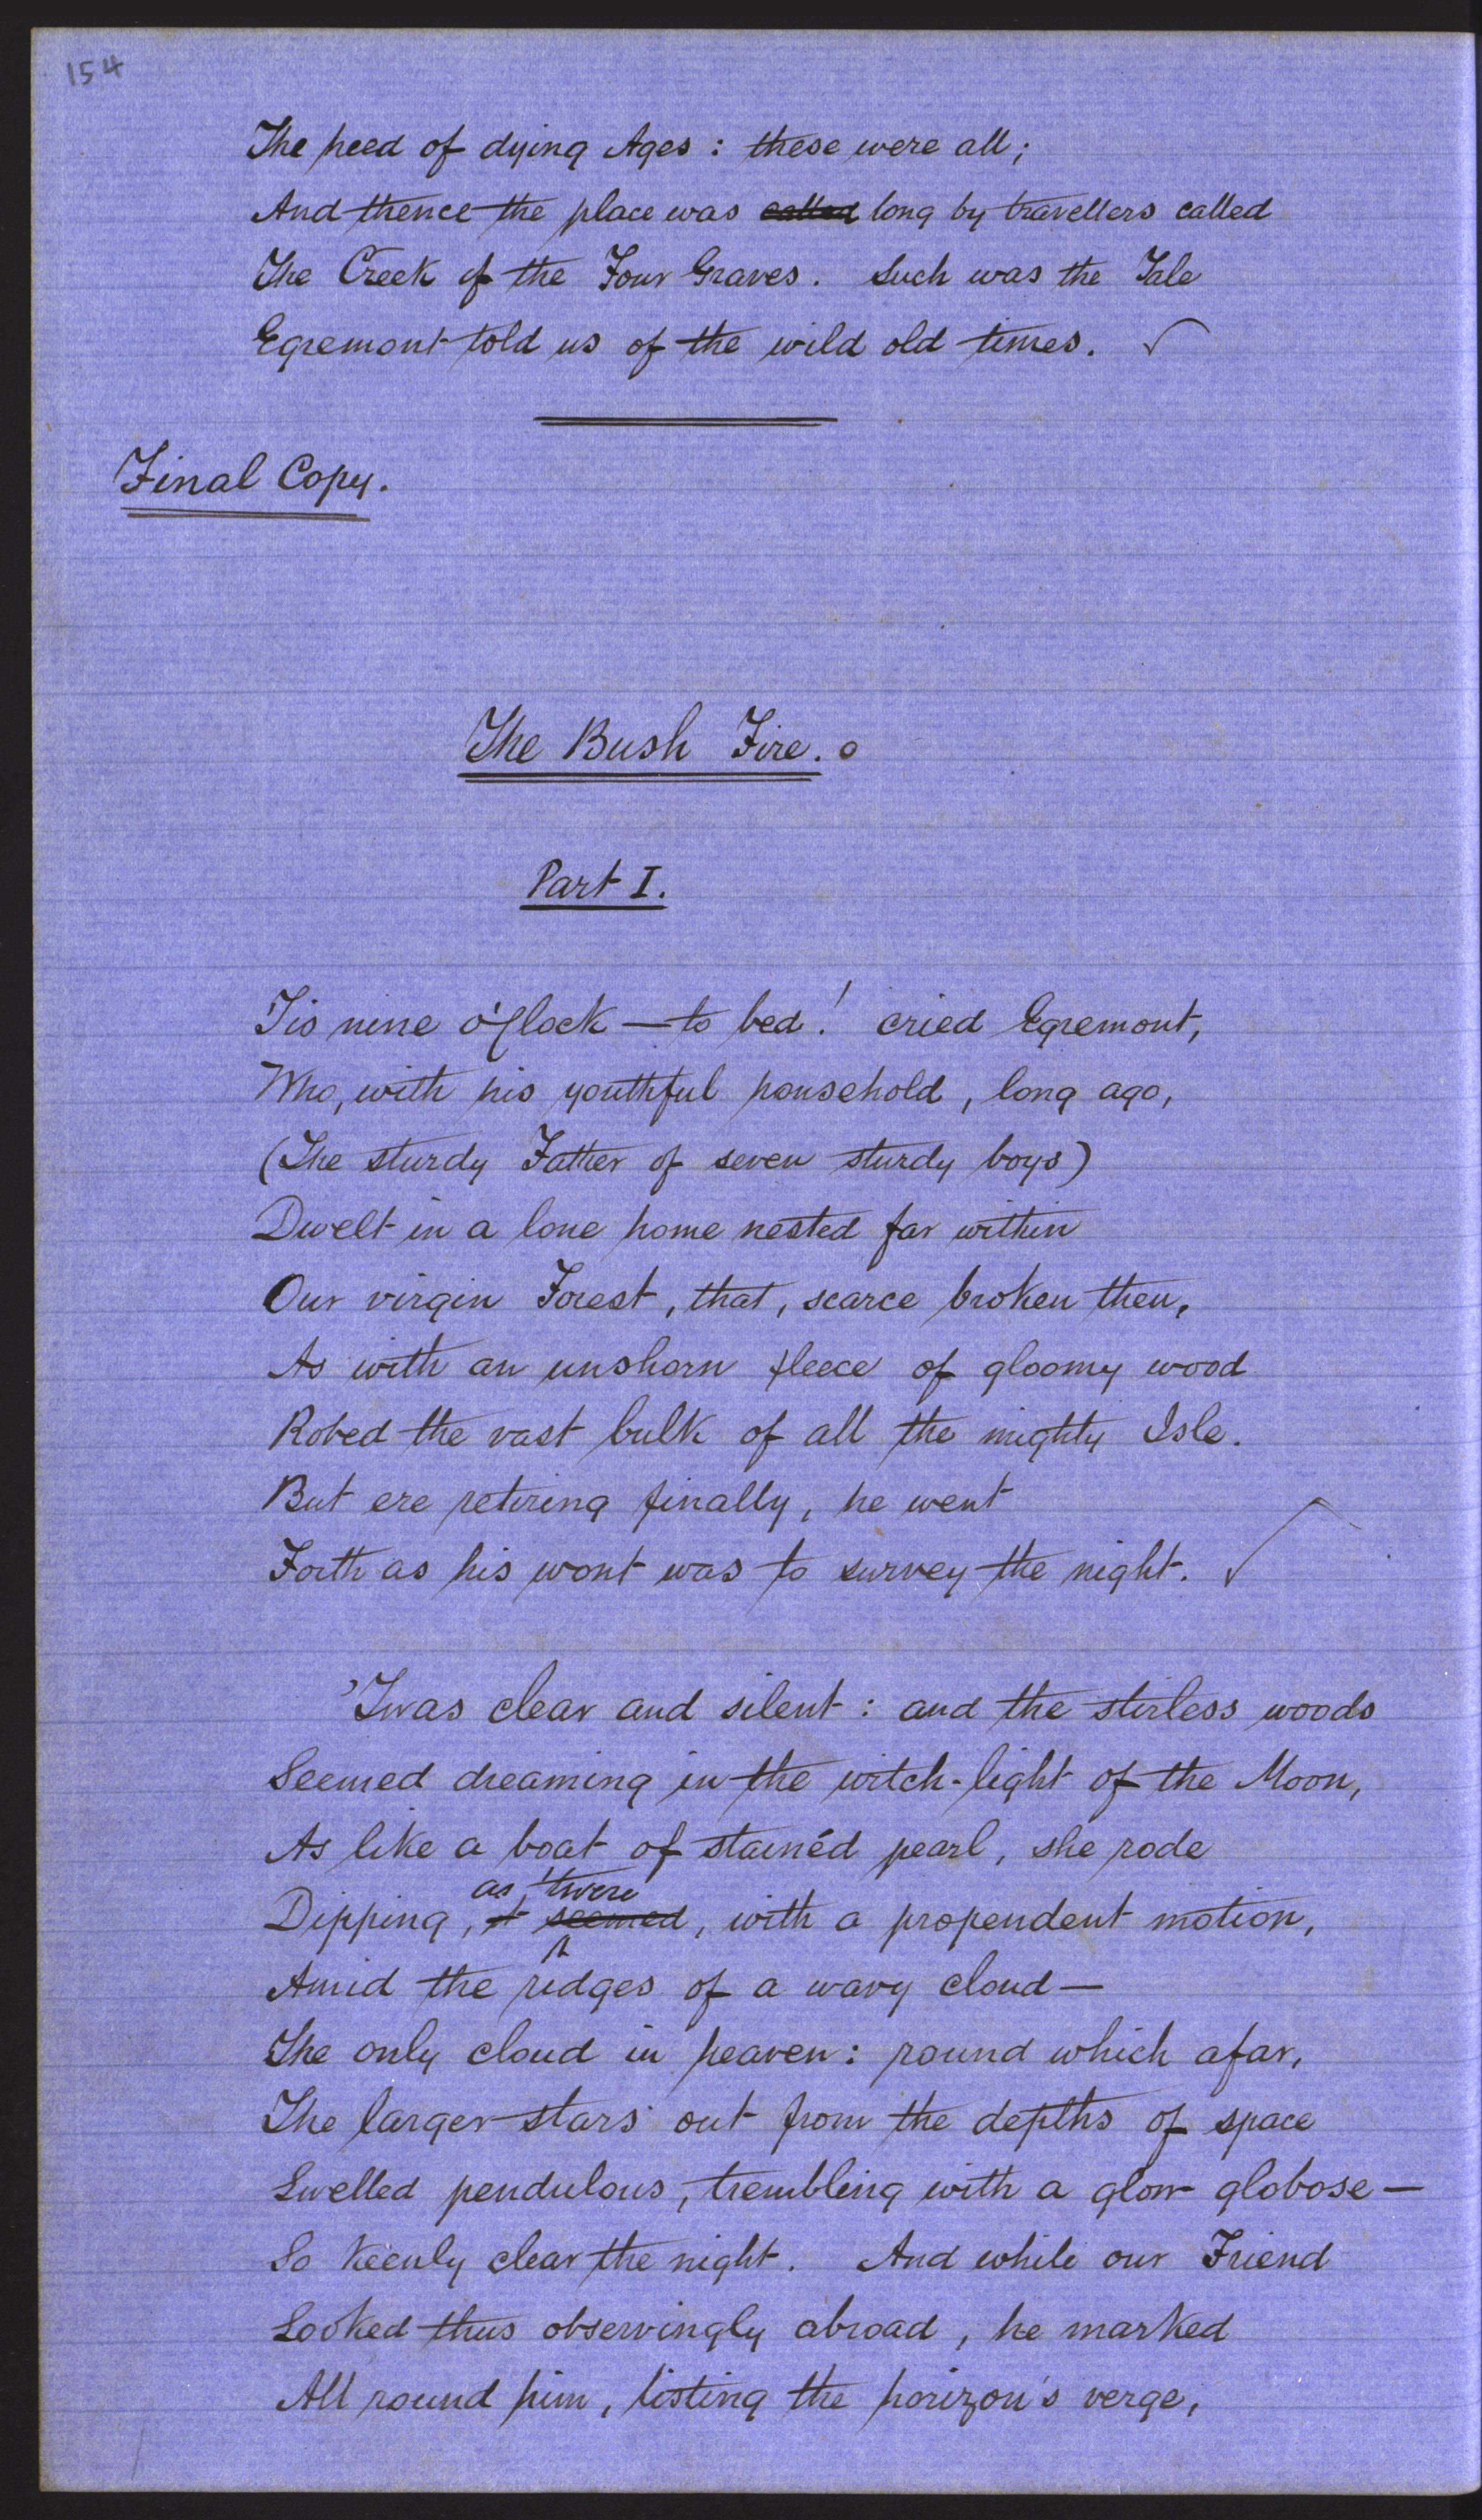 154
The heed of dying Ages: these were all;
And thence the place was called long by travellers called
The Creek of the Four Graves. Such was the Tale
Egremont told us of the wild old times.
Final Copy.
The Bush Fire.
Part I.
Tis nine o'Clock — to bed! cried Egremont,
Who, with his youthful household, long ago,
(The sturdy Father of seven sturdy boys)
Dwelt in a lone home nested far within
Our virgin Forest, that, scarce broken then,
As with an unshorn fleece of gloomy wood
Robed the vast bulk of all the mighty Isle.
But ere retiring finally, he went
Forth as his wont was to survey the night.
'Twas clear and silent: and the stirless woods
Seemed dreaming in the witch-light of the Moon,
As like a boat of stainéd pearl, she rode
as 'twere
Dipping, it seemed, with a propendent motion,
Amid the ridges of a wavy cloud —
The only cloud in heaven: round which afar,
The larger stars out from the depths of space
Swelled pendulous, trembling with a glow globose —
So keenly clear the night. And while our Friend
Looked thus observingly abroad, he marked
All round him, listing the horizon's verge,